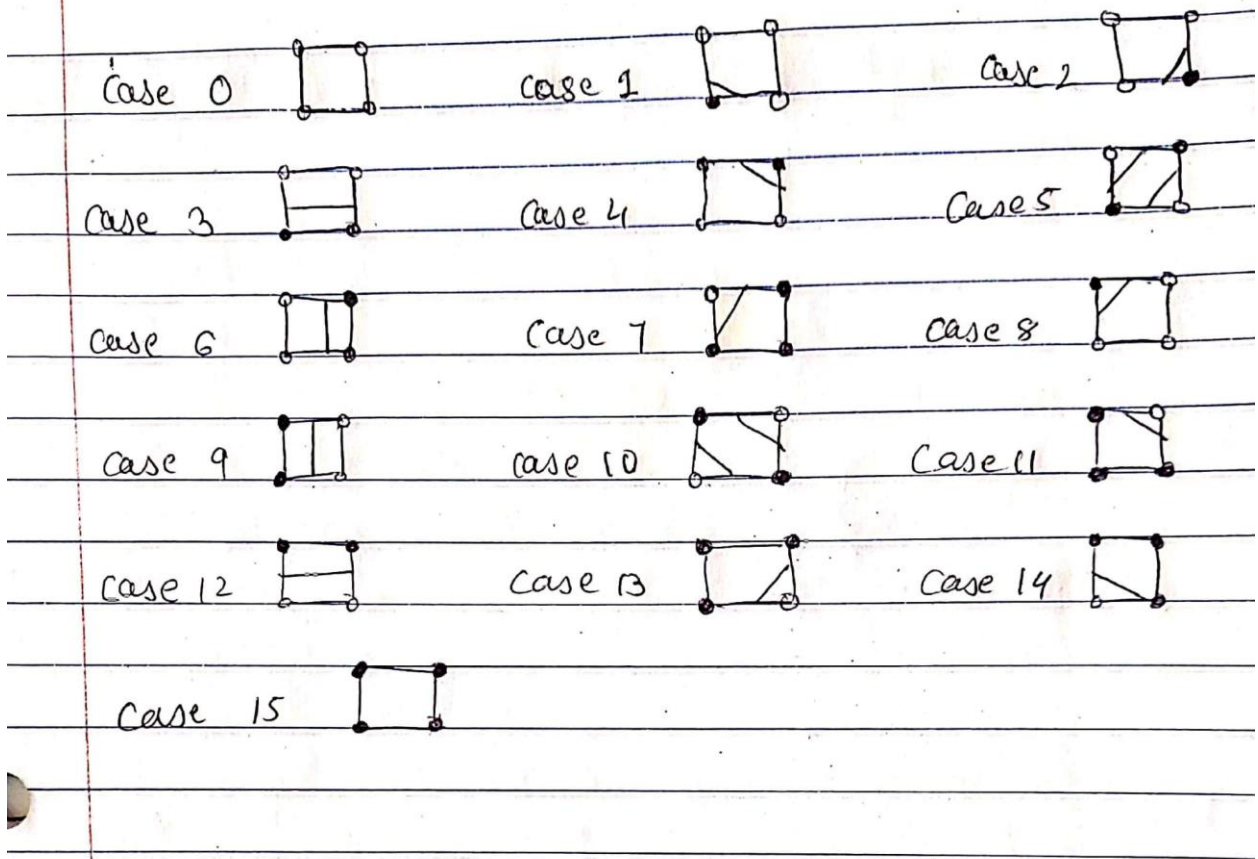 Case 0 case 1 Case 2
Case 3 Case 4 Case 5
Case 6 Case 7 Case 8
Case 9 Case 10 Case 11
Case 12 Case 13 Case 14
Case 15